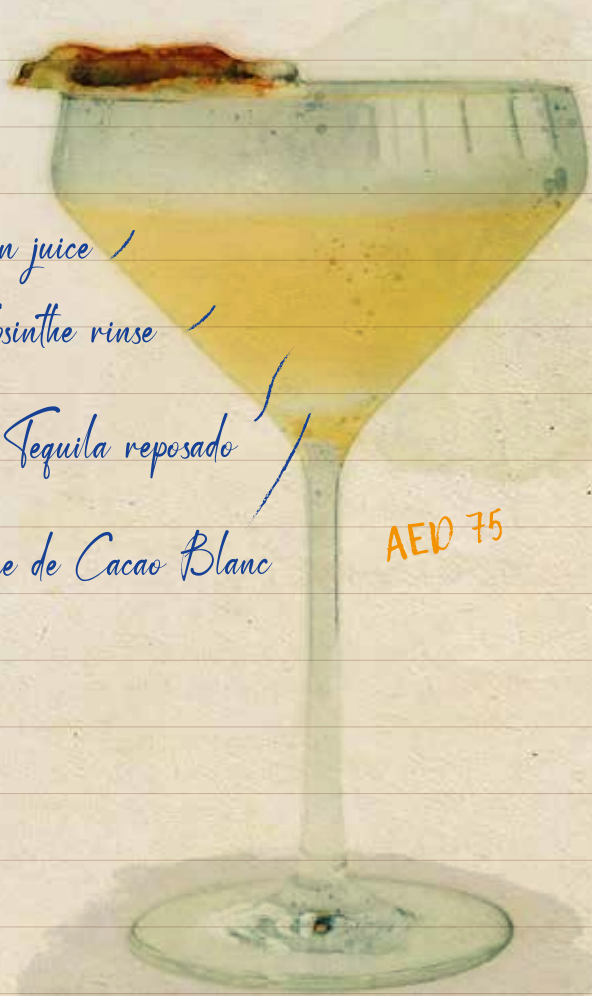 juice
rinse
Tequila reposado
de Cacao Blanc
AED 75